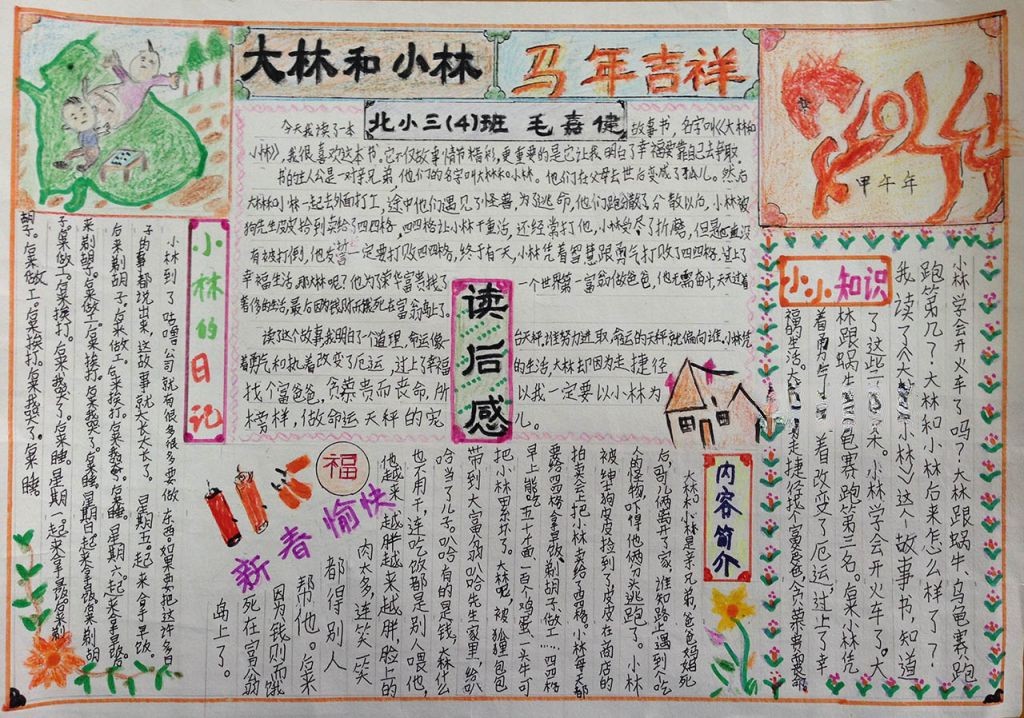 大林和小林
马年吉祥
北小三(4)班 毛嘉健
甲午年
今天我读了一本
故事书，名字叫《大林和
小林》，我很喜欢这本书。它不仅故事情节精彩，更重要的是它让我明白了幸福要靠自己去争取。
书的主人公是一对亲兄弟，他们的名字叫大林和小林。他们在父母去世后变成了孤儿。然后
大林和小林一起去外面打工，途中他们遇见了怪兽，为了逃命，他们跑分散了。分散以后，小林被
狗先生皮皮捡到卖给了四四格，四四格让小林干重活，还经常打他，小林受尽了折磨，但是他
有被打倒，他发誓一定要打败四四格，终于有一天，小林凭着智慧跟勇气打败了四四格，过上了
幸福生活，那大林呢？他为了荣华富贵找了
一个世界第一富翁做爸爸，他无需奋斗，天天过着
读这个故事我明白了一个道理，命运像一
台天秤，谁努力进取，命运的天秤就偏向谁，小林凭
着勇气和执着改变了厄运，过上了幸福
的生活，大林却因为走捷径
找个富爸爸，贪恋荣贵而丧命，所
以我一定要以小林为
榜样，做命运天秤的宠
儿。
读后感
小林的日记
小林到了咕噜公司就有很多很多要做
东西。如果要把这许多日
子的事都说出来，这故事就太长太长了。
星期五。起来拿早饭
后来剃胡子。后来做工。后来挨打。
星期六。起来拿早饭。后
来剃胡子。后来做工。后来挨打。后来我哭了。后来睡。星期日。起来拿早饭。后来剃胡
子。后来做工。后来挨打。后来我哭了。后来睡。星期一。起来拿早饭。后来剃
胡子。后来做工。后来挨打。后来我哭了。后来睡
小小知识
小林学会开火车了吗？大林跟蜗牛、乌龟赛跑
跑第几？大林和小林后来怎么样了？
我读了《大林和小林》这个故事书，知道
了这些
小林学会开火车了。大
林跟蜗牛
乌龟赛跑跑第三名。后来小林凭
着勇
着改变了厄运，过上了幸
福的生活。大
走捷径找个富爸爸，
内容简介
大林和小林是亲兄弟，爸爸妈妈死
后哥儿俩离开了家，谁知路上遇到个吃
人的怪物，吓得他俩分头逃跑了。小林
被绅士狗皮皮捡到了，皮皮在商店的
拍卖会上把小林卖给了四四格。小林每天都
要给四四格拿早饭，剃胡子，做工……四四格
早上能吃五十斤面，一百个鸡蛋，一头牛可
把小林累坏了。大林呢，被狐狸包包
带到大富翁叭哈先生家里，给叭
哈当了儿子。叭哈有的是钱，大林什么
也不用干，连吃饭都是别人喂他，
他越来越胖越来越胖，脸上的
肉太多，连笑一笑
都得别人
帮他。后来
因为钱则而饿
死在富翁
岛上了。
福
新春愉快